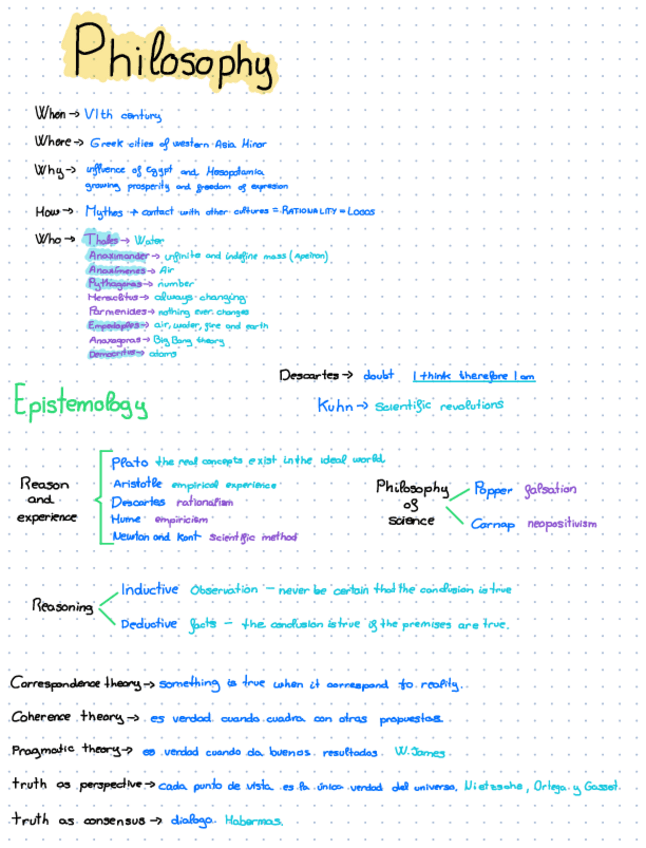 Philosophy
When → VIth century
Where → Greek cities of western Asia Minor
Why → influence of Egypt and Mesopotamia
growing prosperity and freedom of expresion
How → Mythos + contact with other cultures = RATIONALITY = LOGOS
Who → Thales → Water
Anaximander → unfinite and indefine mass (Apeiron)
Anaximenes → Air
Pythagoras → number
Heraclitus → always changing
Parmenides → nothing ever changes
Empedocles → air, water, fire and earth
Anaxagoras → Big Bang theory
Democritus → atoms
Descartes → doubt I think therefore I am
Epistemology
Kuhn → Scientific revolutions
Reason and experience
Plato the real concepts exist in the ideal world
Aristotle empirical experience
Descartes rationalism
Hume empiricism
Newton and Kant Scientific method
Philosophy of science
Popper falsation
Carnap neopositivism
Reasoning
Inductive Observation – never be certain that the conclusion is true
Deductive facts – the conclusion is true if the premises are true.
Correspondence theory → something is true when it correspond to reality.
Coherence theory → es verdad cuando cuadra con otras propuestas
Pragmatic theory → es verdad cuando da buenos resultados. W. James
truth as perspective → cada punto de vista es la única verdad del universo. Nietzsche, Ortega y Gasset.
truth as consensus → dialogo. Habermas.